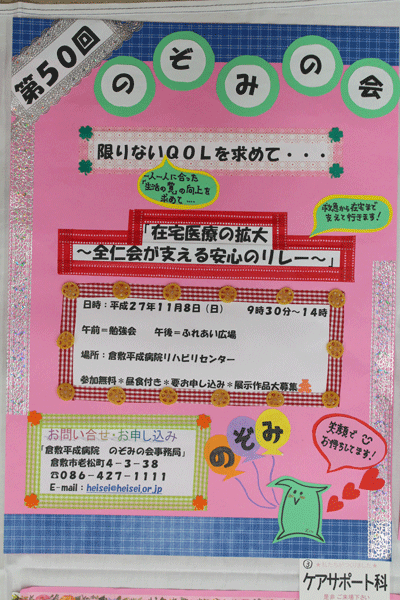 第50回
のぞみの会
限りないQOLを求めて・・・
一人一人に合った
「生活の質」の向上を
求めて….
救急から在宅まで
支えて行きます!
「在宅医療の拡大
～全仁会が支える安心のリレー～」
日時：平成27年11月8日（日）　9時30分～14時
午前＝勉強会　午後＝ふれあい広場
場所：倉敷平成病院リハビリセンター
参加無料＊昼食付き＊要お申し込み＊展示作品大募集
お問い合せ・お申し込み
「倉敷平成病院　のぞみの会事務局」
倉敷市老松町4－3－38
☎086-427-1111
E-mail：heisei@heisei.or.jp
のぞみ
笑顔で
お待ちしてます！
③
ケアサポート科